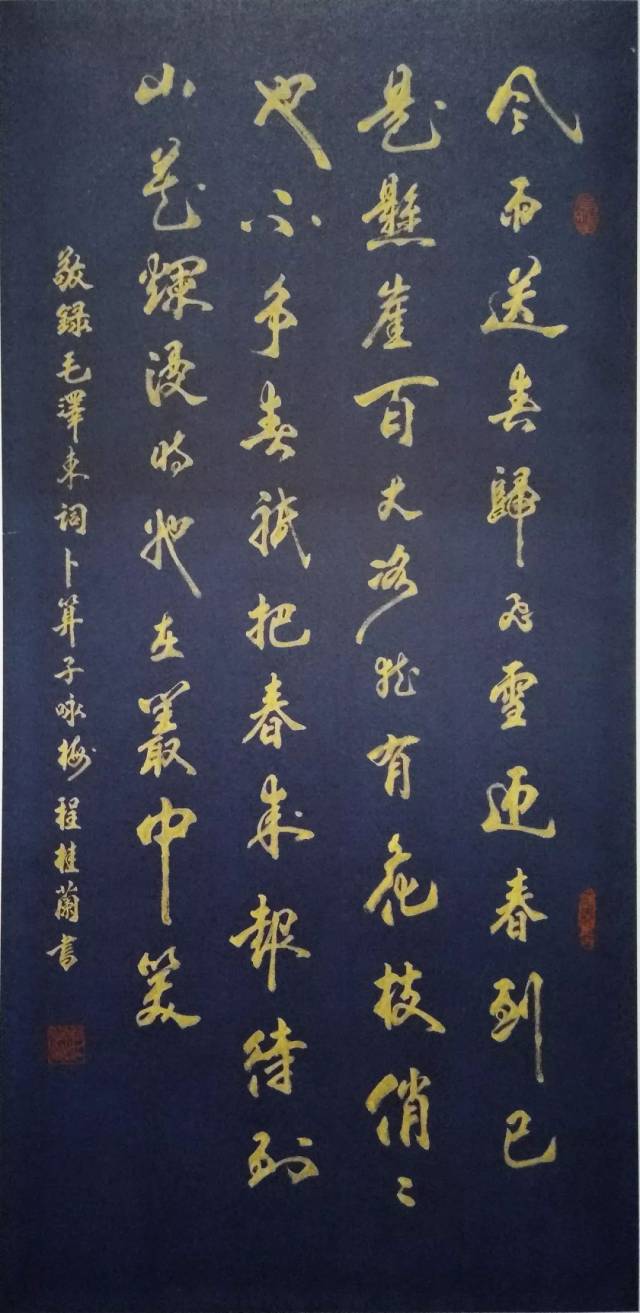 风雨送春歸飛雪迎春到已
是懸崖百丈冰猶有花枝俏〻
也不争春祇把春来報待到
山花爛漫時她在叢中笑
敬録毛澤東词卜算子咏梅程桂蘭書